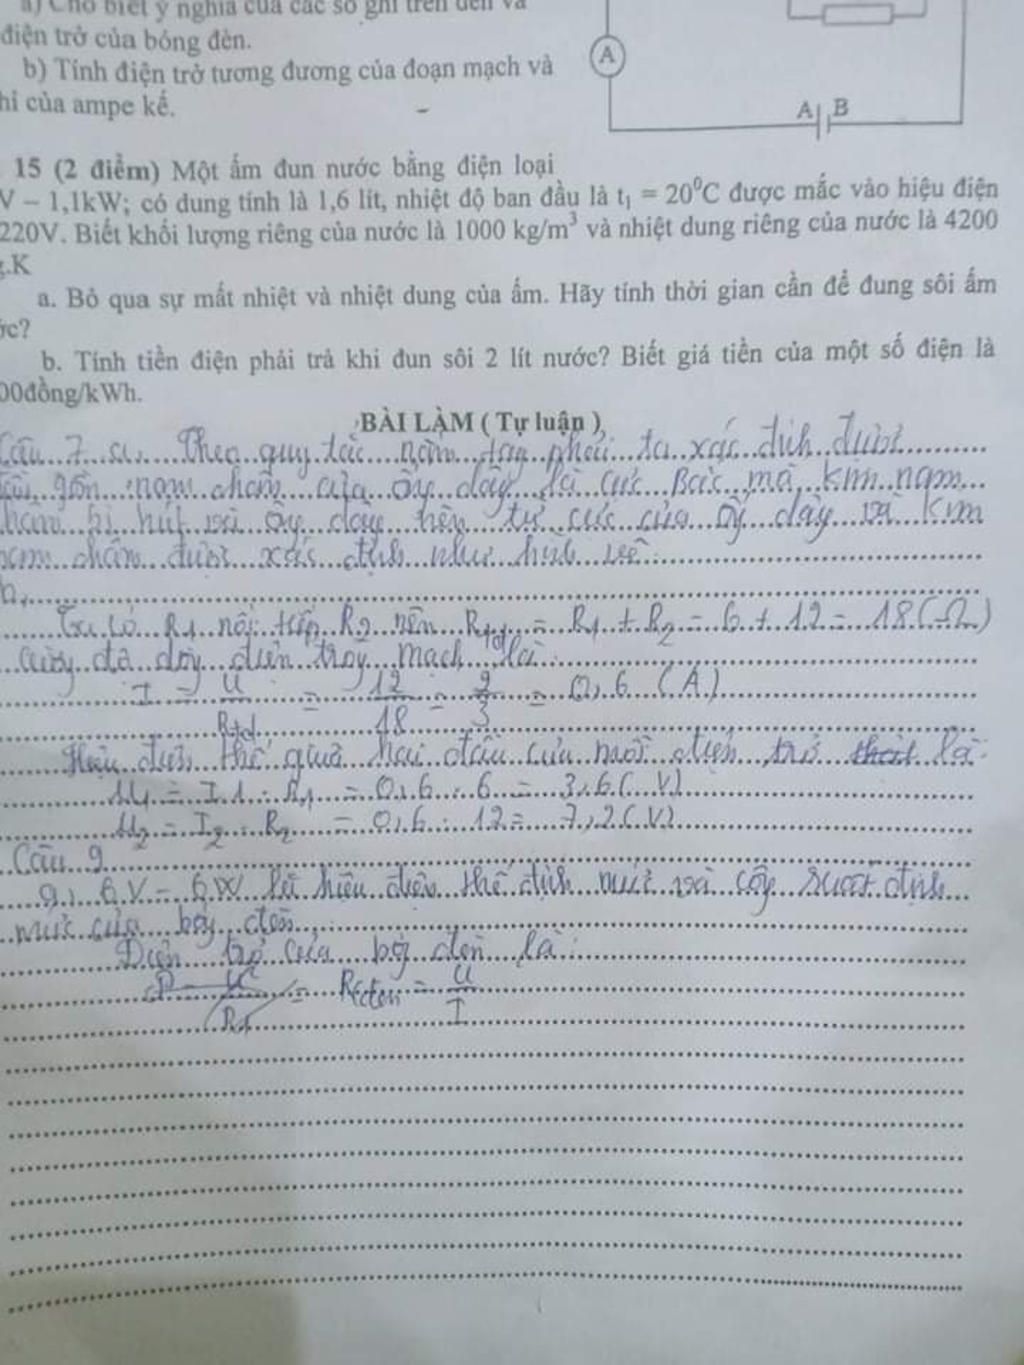 a) Cho biết ý nghĩa của các số ghi trên đèn và
điện trở của bóng đèn.
b) Tính điện trở tương đương của đoạn mạch và
hỉ của ampe kế.
A
A B
15 (2 điểm) Một ấm đun nước bằng điện loại
V – 1,1kW; có dung tính là 1,6 lít, nhiệt độ ban đầu là t₁ = 20⁰C được mắc vào hiệu điện
220V. Biết khối lượng riêng của nước là 1000 kg/m³ và nhiệt dung riêng của nước là 4200
g.K
a. Bỏ qua sự mất nhiệt và nhiệt dung của ấm. Hãy tính thời gian cần để đung sôi ấm
ớc?
b. Tính tiền điện phải trả khi đun sôi 2 lít nước? Biết giá tiền của một số điện là
00đồng/kWh.
BÀI LÀM ( Tự luận )
Câu 7 a, Theo quy tắc nắm tay phải ta xác định được
gần nam châm của ống dây là cực Bắc mà kim nam
châm bị hút với ống dây nên từ cực của ống dây và kim
nam châm được xác định như hình vẽ
b,
Ta có R1 nối tiếp R2 nên Rtđ = R1 + R2 = 6 + 12 = 18 (Ω)
Cường độ dòng điện trong mạch là
I = U/Rtđ = 12/18 = 2/3 = 0,6 (A)
Hiệu điện thế giữa hai đầu của mỗi điện trở là
U1 = I1 . R1 = 0,6 . 6 = 3,6 (V)
U2 = I2 . R2 = 0,6 . 12 = 7,2 (V)
Câu 9
a, 6V – 6W là hiệu điện thế định mức và công suất định
mức của bóng đèn
Điện trở của bóng đèn là :
= Rđèn = U/I